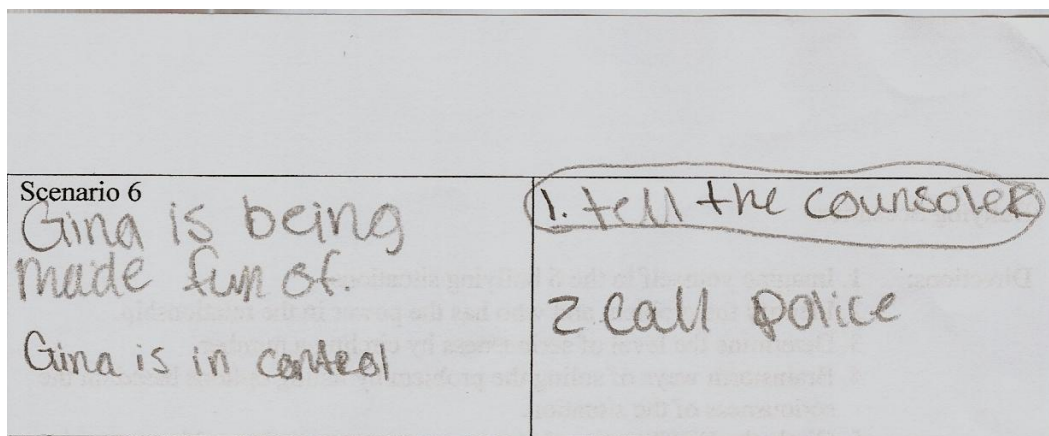 Scenario 6
Gina is being
made fun of.
Gina is in control
1. tell the counsoler
2 call police